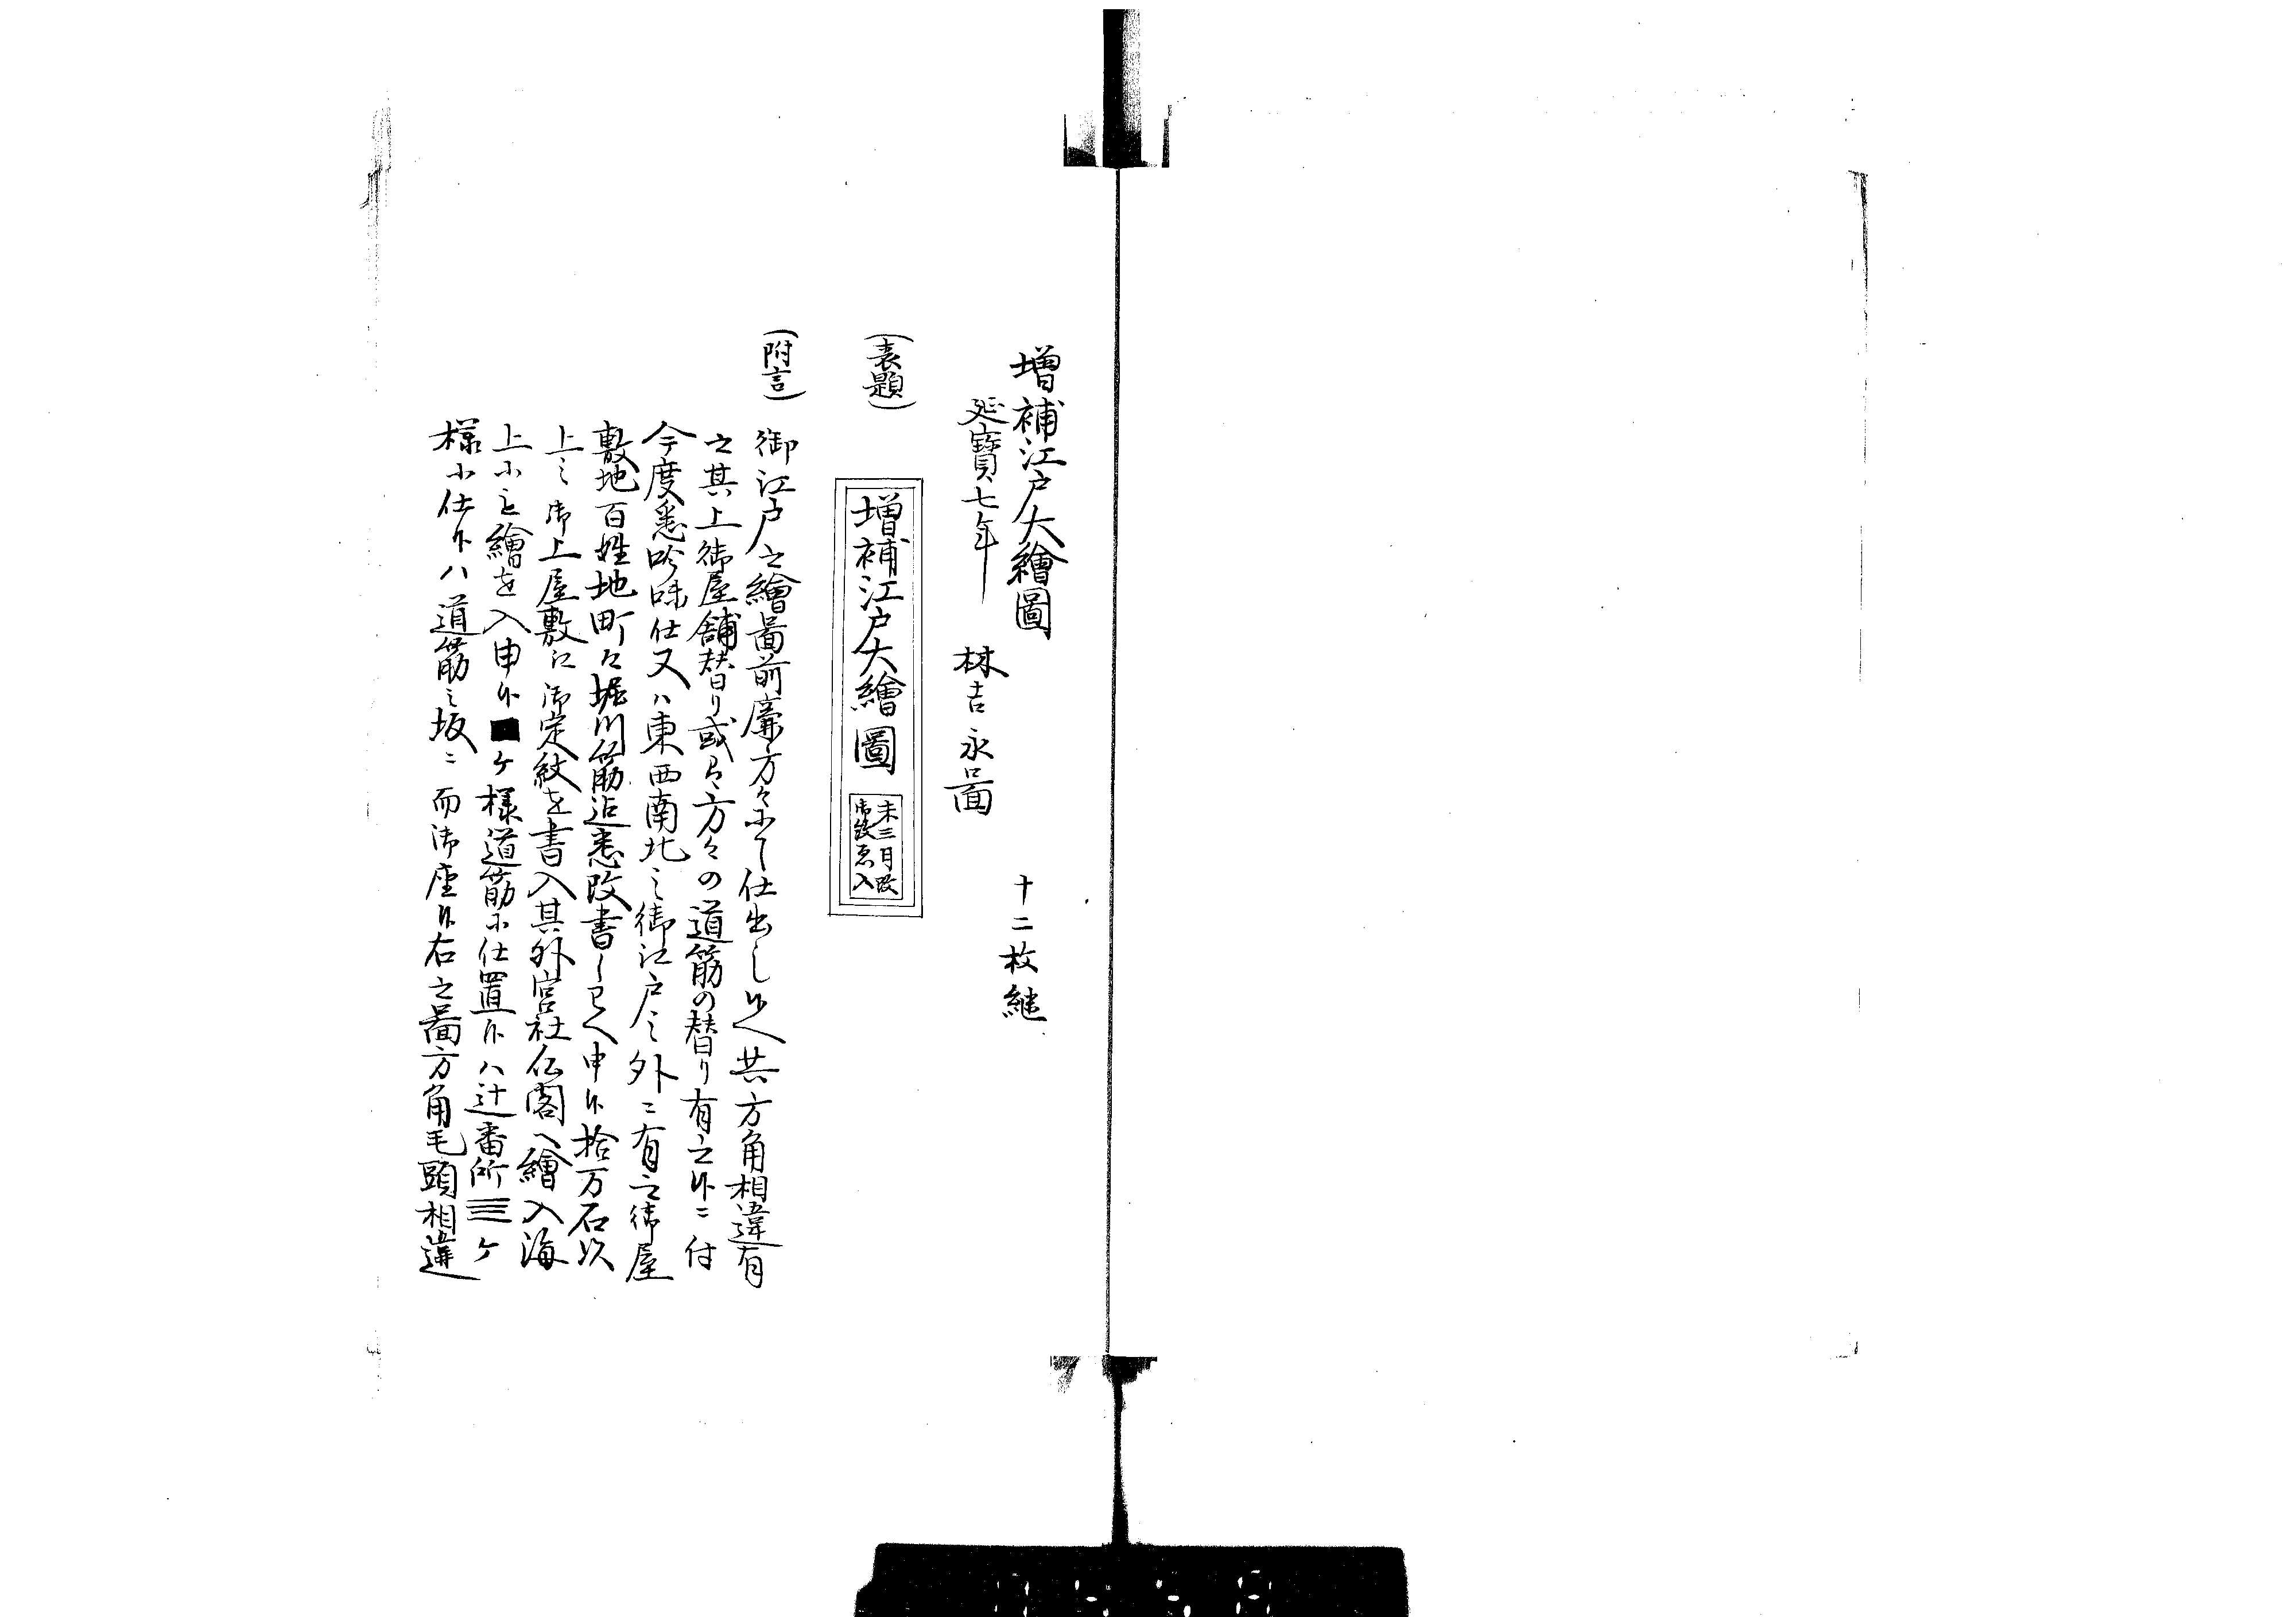 増補江戸大繪圖
十二枚継
延寶七年
林吉永圖
(表題)
増補江戸大繪圖
未三月改
御紋ゑ入
(附言)
御江戸之繪圖前廉方々ニ而仕出し候へ共方角相違有
之其上御屋舗替り或ハ方々の道筋の替り有之候ニ付
今度悉吟味仕又ハ東西南北之御江戸之外ニ有之御屋
敷地百姓地町々堀川筋迄悉改書しるへ申候拾万石以
上之御上屋敷に御定紋を書入其外宮社仏閣へ繪入海
上にも繪を入申候■ケ様道筋に仕置候ハ辻番所三ケ
様に仕候ハ道筋之坂ニ而御座候右之圖方角毛頭相違